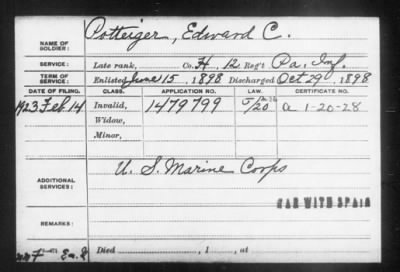 NAME OF SOLDIER: Potteiger, Edward C.
SERVICE: Late rank, Co. H, 12 Reg't Pa. Inf.
TERM OF SERVICE: Enlisted June 15, 1898 Discharged Oct 29, 1898
DATE OF FILING. CLASS. APPLICATION NO. LAW. CERTIFICATE NO.
1923 Feb 14 Invalid, 1479799
Widow,
Minor,
ADDITIONAL SERVICES: U. S. Marine Corps
WAR WITH SPAIN
REMARKS:
Died , 1 , at